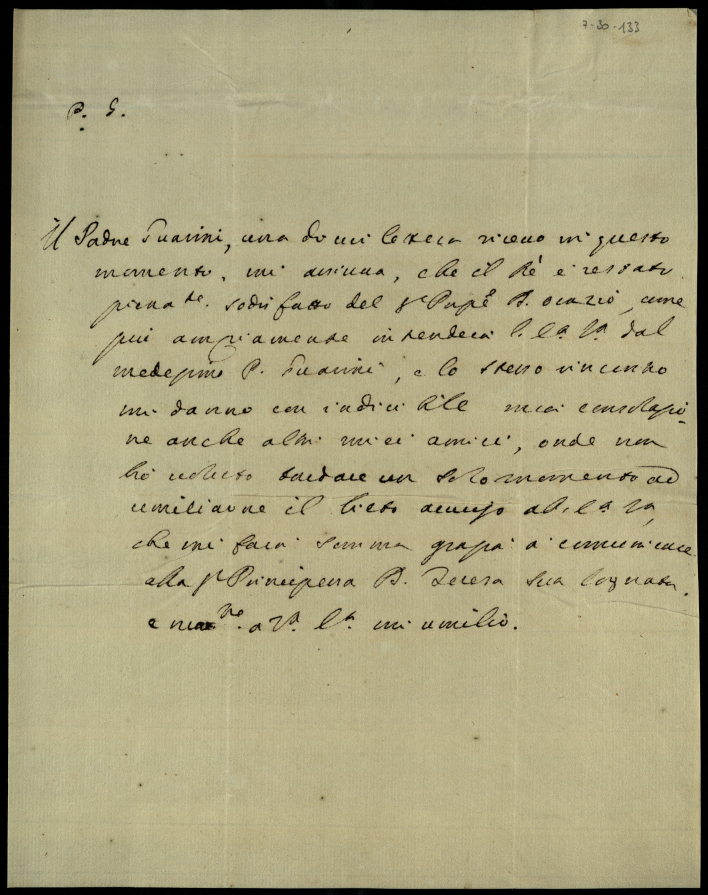 7-30-133
P. S.
Il Padre Guarini, una di cui lettera ricevo in questo
momento, mi avvisa, che il Ré è restato
piena.te sodisfatto del S.r Pnpê D. Orazio, come
piú ampiamente intenderà l. E.a V.a dal
medesimo P. Guarini, e lo stesso rincontro
mi danno con indicibile mia consolazio-
ne anche altri miei amici, onde non
hó voluto tardare un solo momento ad
umiliarne il lieto avviso all. E.a V.a,
che mi farà somma grazia di comunicare
alla S.ra Principessa D. Teresa sua Cognata,
e a V.a E.a mi umilio.